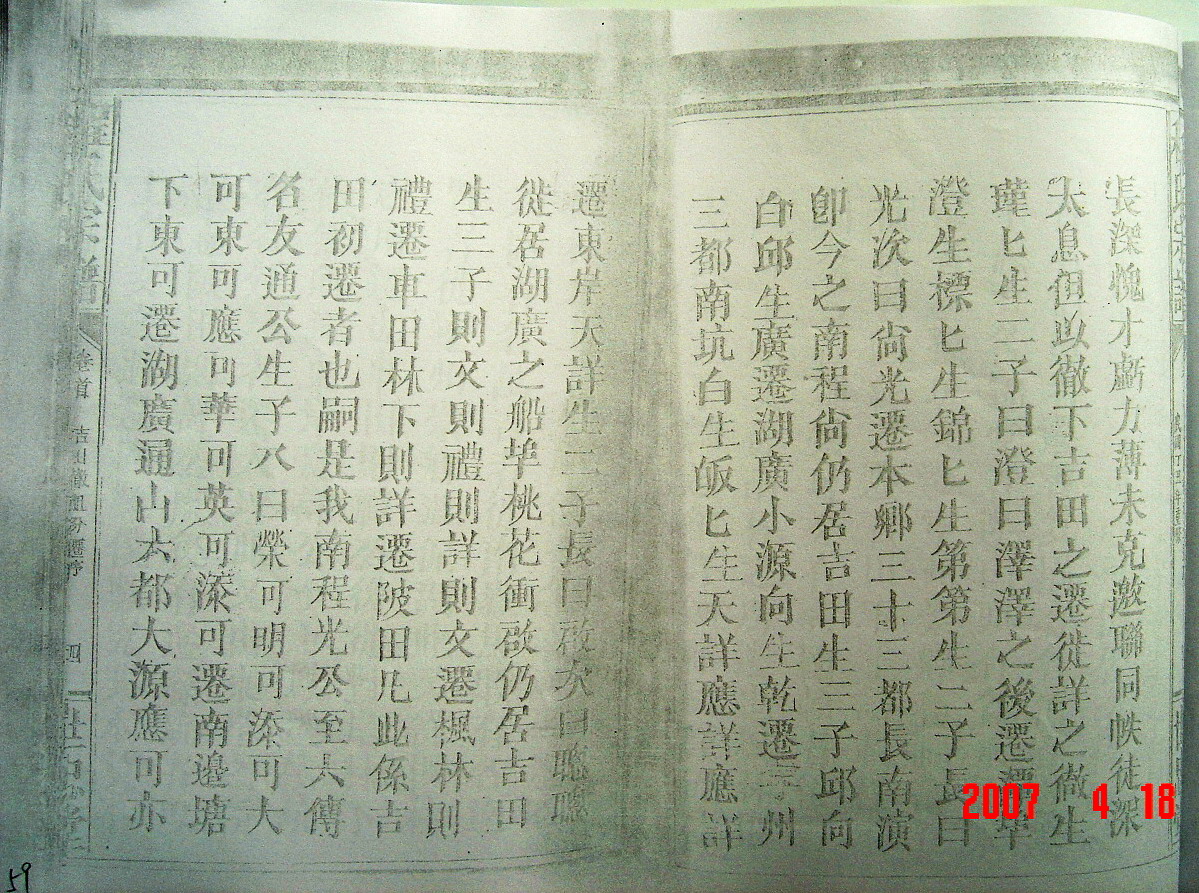 張深愧才虧力薄未克邀聯同帙徒深
太息但以徹下吉田之遷徙詳之徹生
匕生二子曰澄曰澤澤之後遷潭埠
澄生標匕生錦匕生第第生二子長曰
光次曰尙光遷本鄉三十三都長南演
卽今之南程尙仍居吉田生三子邱向
白邱生廣遷湖廣小源向生乾遷州
三都南坑白生皈匕生天詳應詳應詳
遷東岸天詳生二子長曰啟次曰聰聰
徙居湖廣之船埠桃花衝啟仍居吉田
生三子則文則禮則詳則文遷楓林則
禮遷車田林下則詳遷陂田凡此係吉
田初遷者也嗣是我南程光公至六傳
名友通公生子八曰榮可明可添可大
可東可應可華可英可添可遷南邉塘
下東可遷湖廣通山六都大源應可亦
氏宗譜
卷首
吉田徹祖分遷序
四
2007 4 18
59